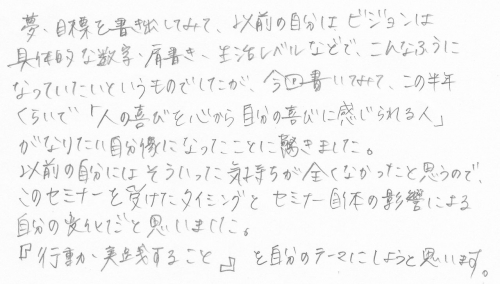 夢、目標を書き出してみて、以前の自分はビジョンは
具体的な数字、肩書き、生活レベルなどで、こんなふうに
なっていたいというものでしたが、今回書いてみて、この半年
くらいで「人の喜びを心から自分の喜びに感じられる人」
がなりたい自分像になったことに驚きました。
以前の自分にはそういった気持ちが全くなかったと思うので、
このセミナーを受けたタイミングとセミナー自体の影響による
自分の変化だと思いました。
『行動か実践すること』を自分のテーマにしようと思います。